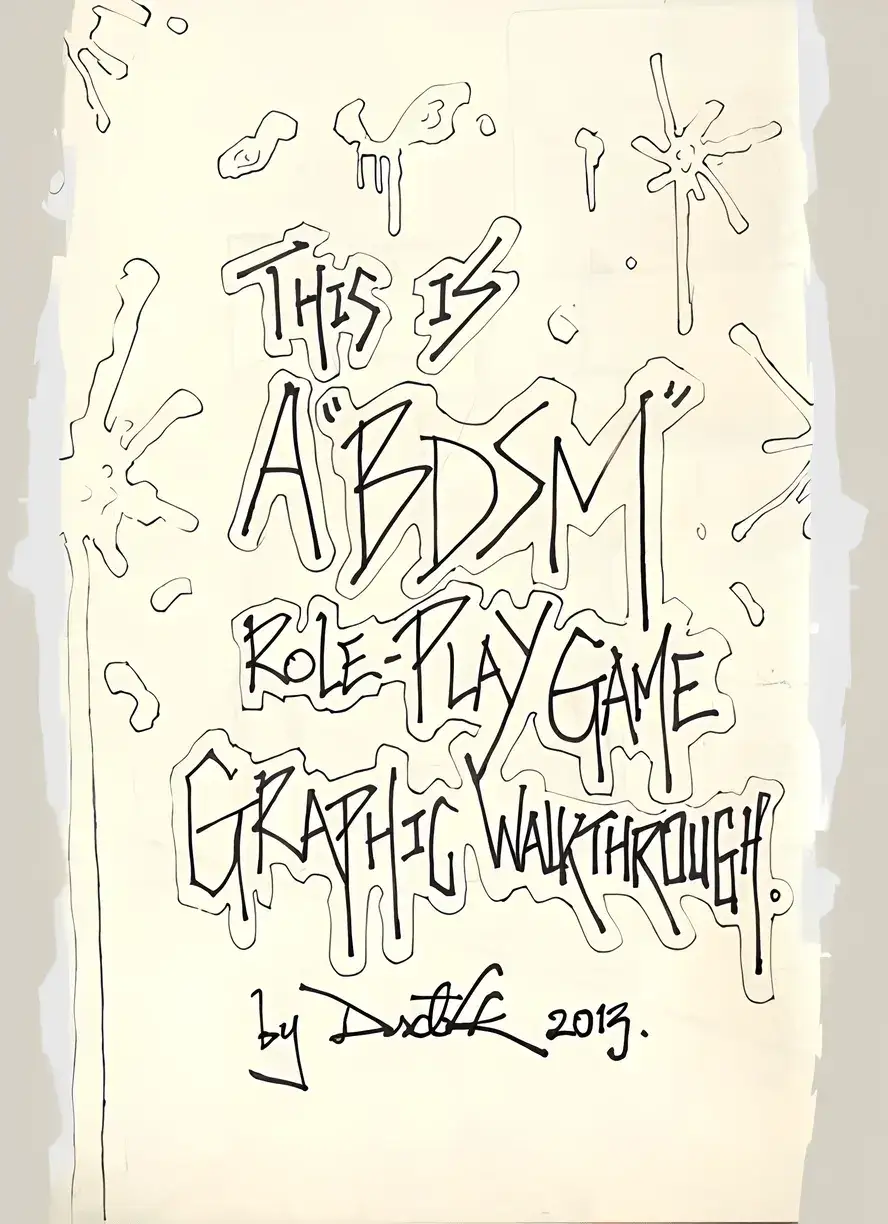 THIS IS
A "BDSM"
ROLE-PLAY GAME
GRAPHIC WALKTHROUGH.
by 2013.